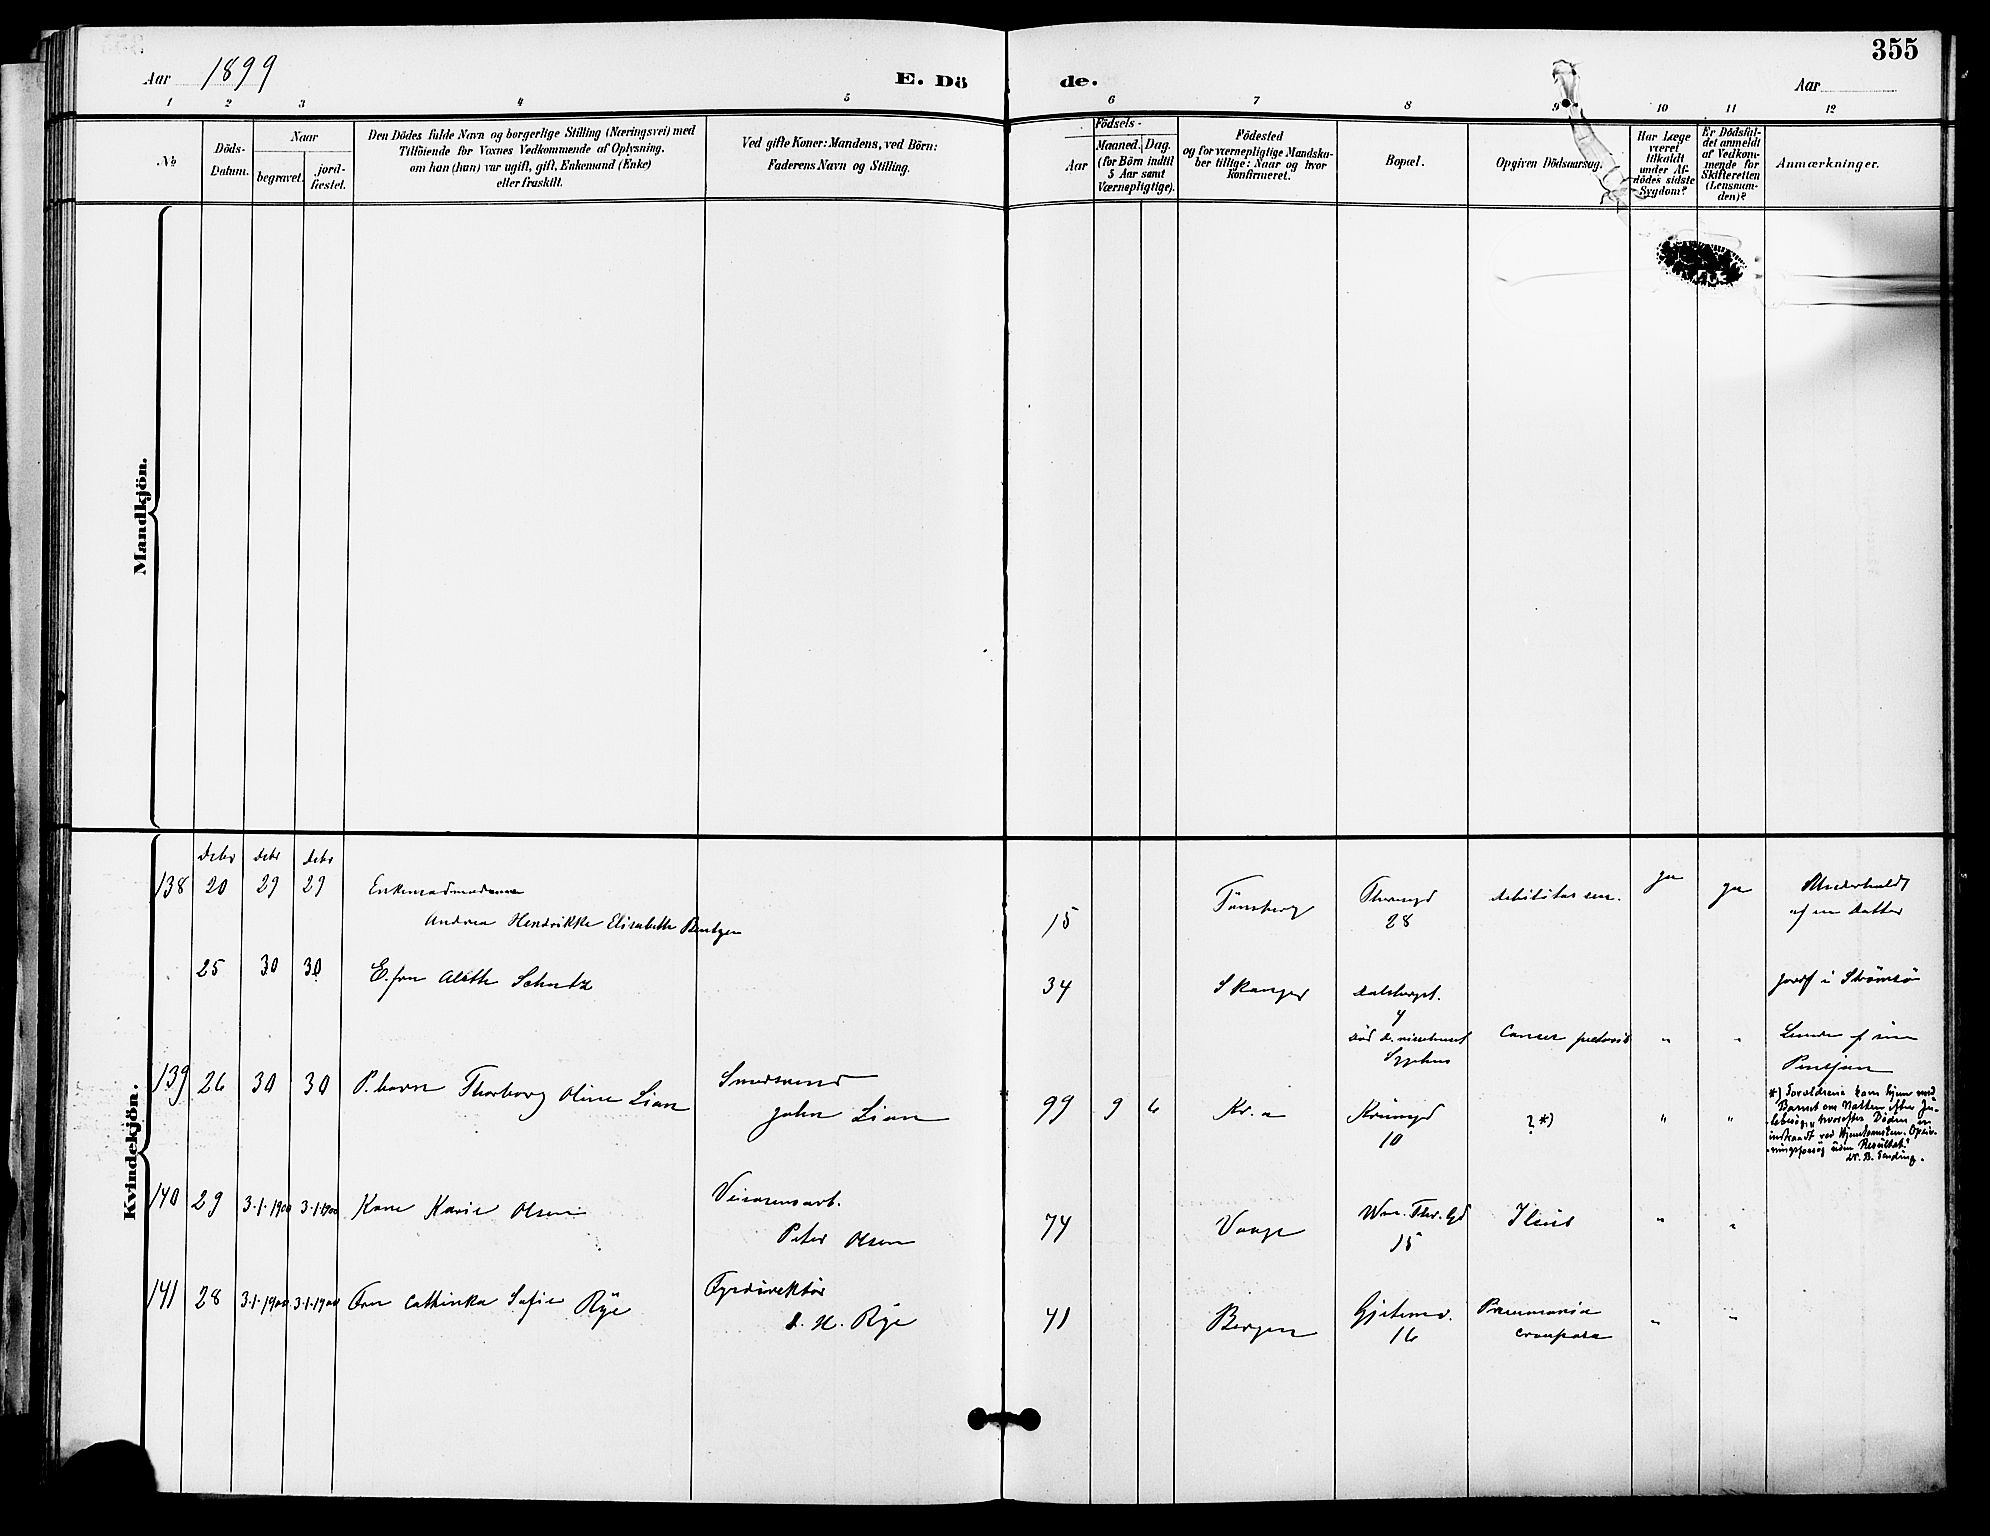 355
Aar 1899
E. Dö
de.
Aar
1 2 3 4 5 6 7 8 9 10 11 12
No
Döds-
Datum.
Naar
begravet.
jord-
fæstet.
Den Dödes fulde Navn og borgerlige Stilling (Næringsvei) med
Tilföiende for Voxnes Vedkommende af Oplysning.
om han (hun) var ugift, gift, Enkemand (Enke)
eller fraskilt.
Ved gifte Koner: Mandens, ved Börn:
Faderens Navn og Stilling.
Födsels-
Aar
Maaned. Dag.
(for Börn indtil
5 Aar samt
Værnepligtige).
Födested
og for værnepligtige Mandska-
ber tillige: Naar og hvor
konfirmeret.
Bopæl.
Opgiven Dödsaarsag.
Har Læge
været
tilkaldt
under Af-
dödes sidste
Sygdom?
Er Dödsfal-
det anmeldt
af Vedkom-
mende for
Skifteretten
(Lensman-
den)?
Anmærkninger.
Mandkjön.
Kvindekjön.
Debr Debr Debr
138 20 29 29 Enkemadmadame
Andrea Hendrikke Elisabeth Bentzen
15 Tönsberg
28
debilitas sen. ja ja
Underholdt
af en datter
25 30 30 E.fru Aleth Schultz
34
jordf i Strömsö
Cancer pectoris " "
Pensjon
139 26 30 30 P.barn Thorborg Oline Lian
Smedsvend
John Lian
99 9 6 Kr.a
10
?*) " "
*) Forældrene kom hjem med
Barnet om Natten efter Ju-
lebesög, hvorefter Döden er
indtraadt ved Hjemkomsten. Opliv-
ningsforsög uden Resultat.
140 29 3-1-1900 3-1-1900 Kone Karie Olsen
Peter Olsen
74 Vaage
15
Ileus " "
141 28 3-1-1900 3-1-1900 Fru Cathinka Sofie Rye
Fyrdirektör
Rye
41 Bergen
16
Pneumonia
crouposa
" "